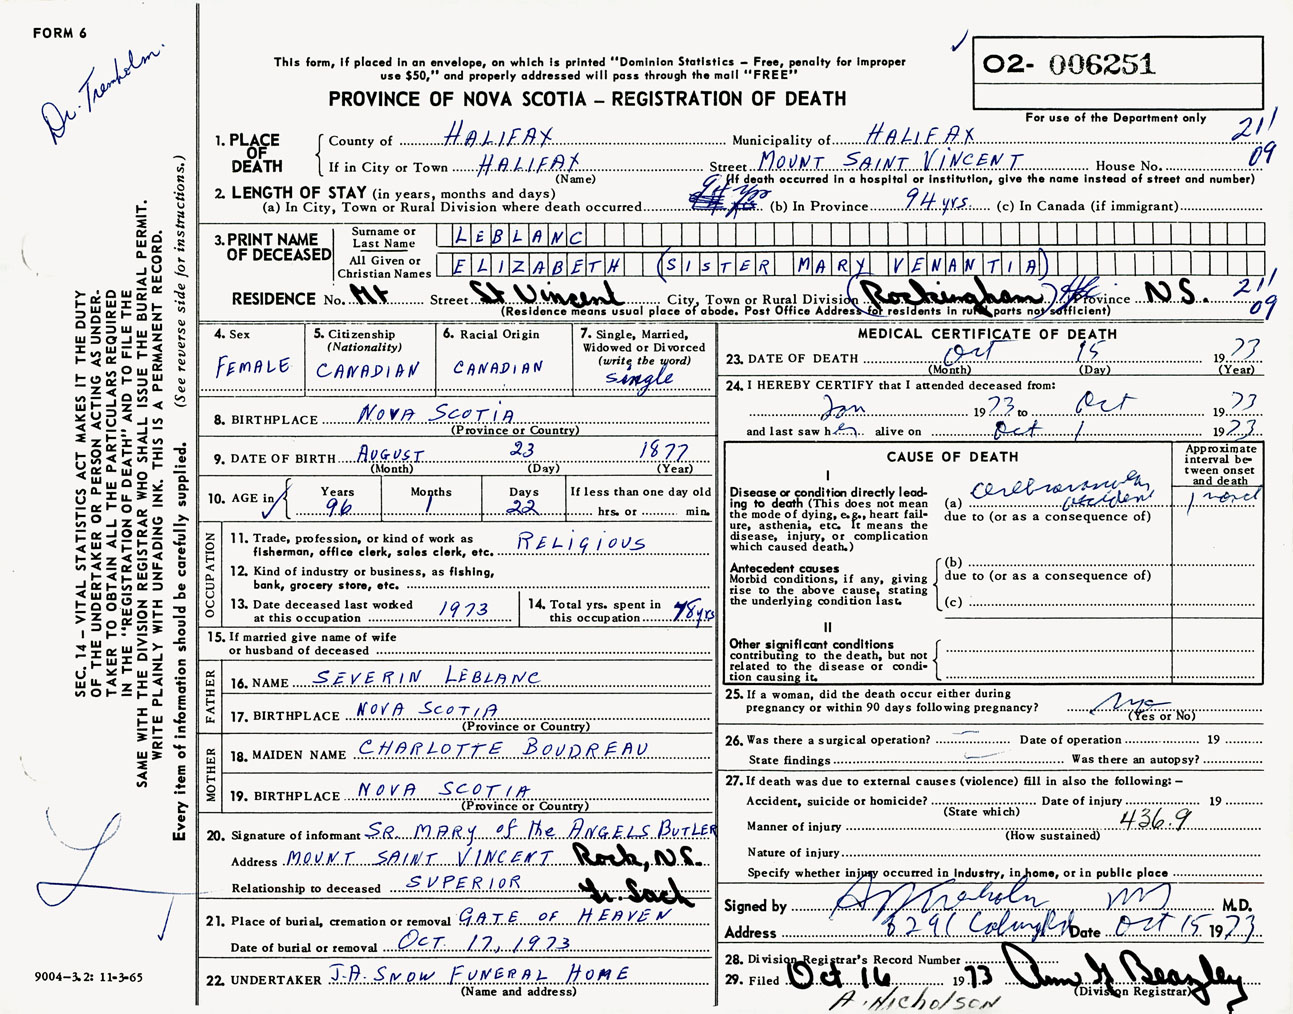 FORM 6
Dr. Trenholm.
This form, if placed in an envelope, on which is printed "Dominion Statistics – Free, penalty for improper
use $50," and properly addressed will pass through the mail "FREE"
PROVINCE OF NOVA SCOTIA – REGISTRATION OF DEATH
O2- 006251
For use of the Department only
211
09
1. PLACE OF DEATH
County of HALIFAX Municipality of HALIFAX
If in City or Town HALIFAX Street MOUNT SAINT VINCENT House No.
(Name) (If death occurred in a hospital or institution, give the name instead of street and number)
2. LENGTH OF STAY (in years, months and days)
(a) In City, Town or Rural Division where death occurred (b) In Province 94 yrs. (c) In Canada (if immigrant)
3. PRINT NAME OF DECEASED
Surname or Last Name LEBLANC
All Given or Christian Names ELIZABETH (SISTER MARY VENANTIA)
RESIDENCE No. Mt Street St Vincent City, Town or Rural Division (Rockingham) Province N.S. 211
09
(Residence means usual place of abode. Post Office Address for residents in rural parts not sufficient)
4. Sex
FEMALE
5. Citizenship
(Nationality)
CANADIAN
6. Racial Origin
CANADIAN
7. Single, Married,
Widowed or Divorced
(write the word)
single
8. BIRTHPLACE NOVA SCOTIA
(Province or Country)
9. DATE OF BIRTH AUGUST 23 1877
(Month) (Day) (Year)
10. AGE in
Years Months Days If less than one day old
96 1 22 hrs. or min.
OCCUPATION
11. Trade, profession, or kind of work as
fisherman, office clerk, sales clerk, etc. RELIGIOUS
12. Kind of industry or business, as fishing,
bank, grocery store, etc.
13. Date deceased last worked
at this occupation 1973
14. Total yrs. spent in
this occupation 78 yrs
15. If married give name of wife
or husband of deceased
FATHER
16. NAME SEVERIN LEBLANC
17. BIRTHPLACE NOVA SCOTIA
(Province or Country)
MOTHER
18. MAIDEN NAME CHARLOTTE BOUDREAU
19. BIRTHPLACE NOVA SCOTIA
(Province or Country)
20. Signature of informant SR. MARY of the ANGELS BUTLER
Address MOUNT SAINT VINCENT Rock, N.S.
Relationship to deceased SUPERIOR
21. Place of burial, cremation or removal GATE OF HEAVEN
Date of burial or removal OCT 17, 1973
22. UNDERTAKER J.A. SNOW FUNERAL HOME
(Name and address)
MEDICAL CERTIFICATE OF DEATH
23. DATE OF DEATH Oct 15 1973
(Month) (Day) (Year)
24. I HEREBY CERTIFY that I attended deceased from:
Jan 1973 to Oct 1973
and last saw her alive on Oct 1 1973
CAUSE OF DEATH
Approximate
interval be-
tween onset
and death
I
Disease or condition directly lead-
ing to death (This does not mean
the mode of dying, e.g., heart fail-
ure, asthenia, etc. It means the
disease, injury, or complication
which caused death.)
(a) cerebrovascular
accident
due to (or as a consequence of)
Antecedent causes
Morbid conditions, if any, giving
rise to the above cause, stating
the underlying condition last.
(b)
due to (or as a consequence of)
(c)
II
Other significant conditions
contributing to the death, but not
related to the disease or condi-
tion causing it.
25. If a woman, did the death occur either during
pregnancy or within 90 days following pregnancy?
(Yes or No)
26. Was there a surgical operation? Date of operation 19
State findings Was there an autopsy?
27. If death was due to external causes (violence) fill in also the following: –
Accident, suicide or homicide? Date of injury 19
(State which)
Manner of injury 436.9
(How sustained)
Nature of injury
Specify whether injury occurred in industry, in home, or in public place
Signed by M.D.
Address 6291 Date Oct 15 1973
28. Division Registrar's Record Number
29. Filed Oct 16 1973 Beazley
(Division Registrar)
A. Nicholson
SEC. 14 – VITAL STATISTICS ACT MAKES IT THE DUTY
OF THE UNDERTAKER OR PERSON ACTING AS UNDER-
TAKER TO OBTAIN ALL THE PARTICULARS REQUIRED
IN THE "REGISTRATION OF DEATH" AND TO FILE THE
SAME WITH THE DIVISION REGISTRAR WHO SHALL ISSUE THE BURIAL PERMIT.
WRITE PLAINLY WITH UNFADING INK. THIS IS A PERMANENT RECORD.
Every item of information should be carefully supplied. (See reverse side for instructions.)
9004–3.2: 11-3-65